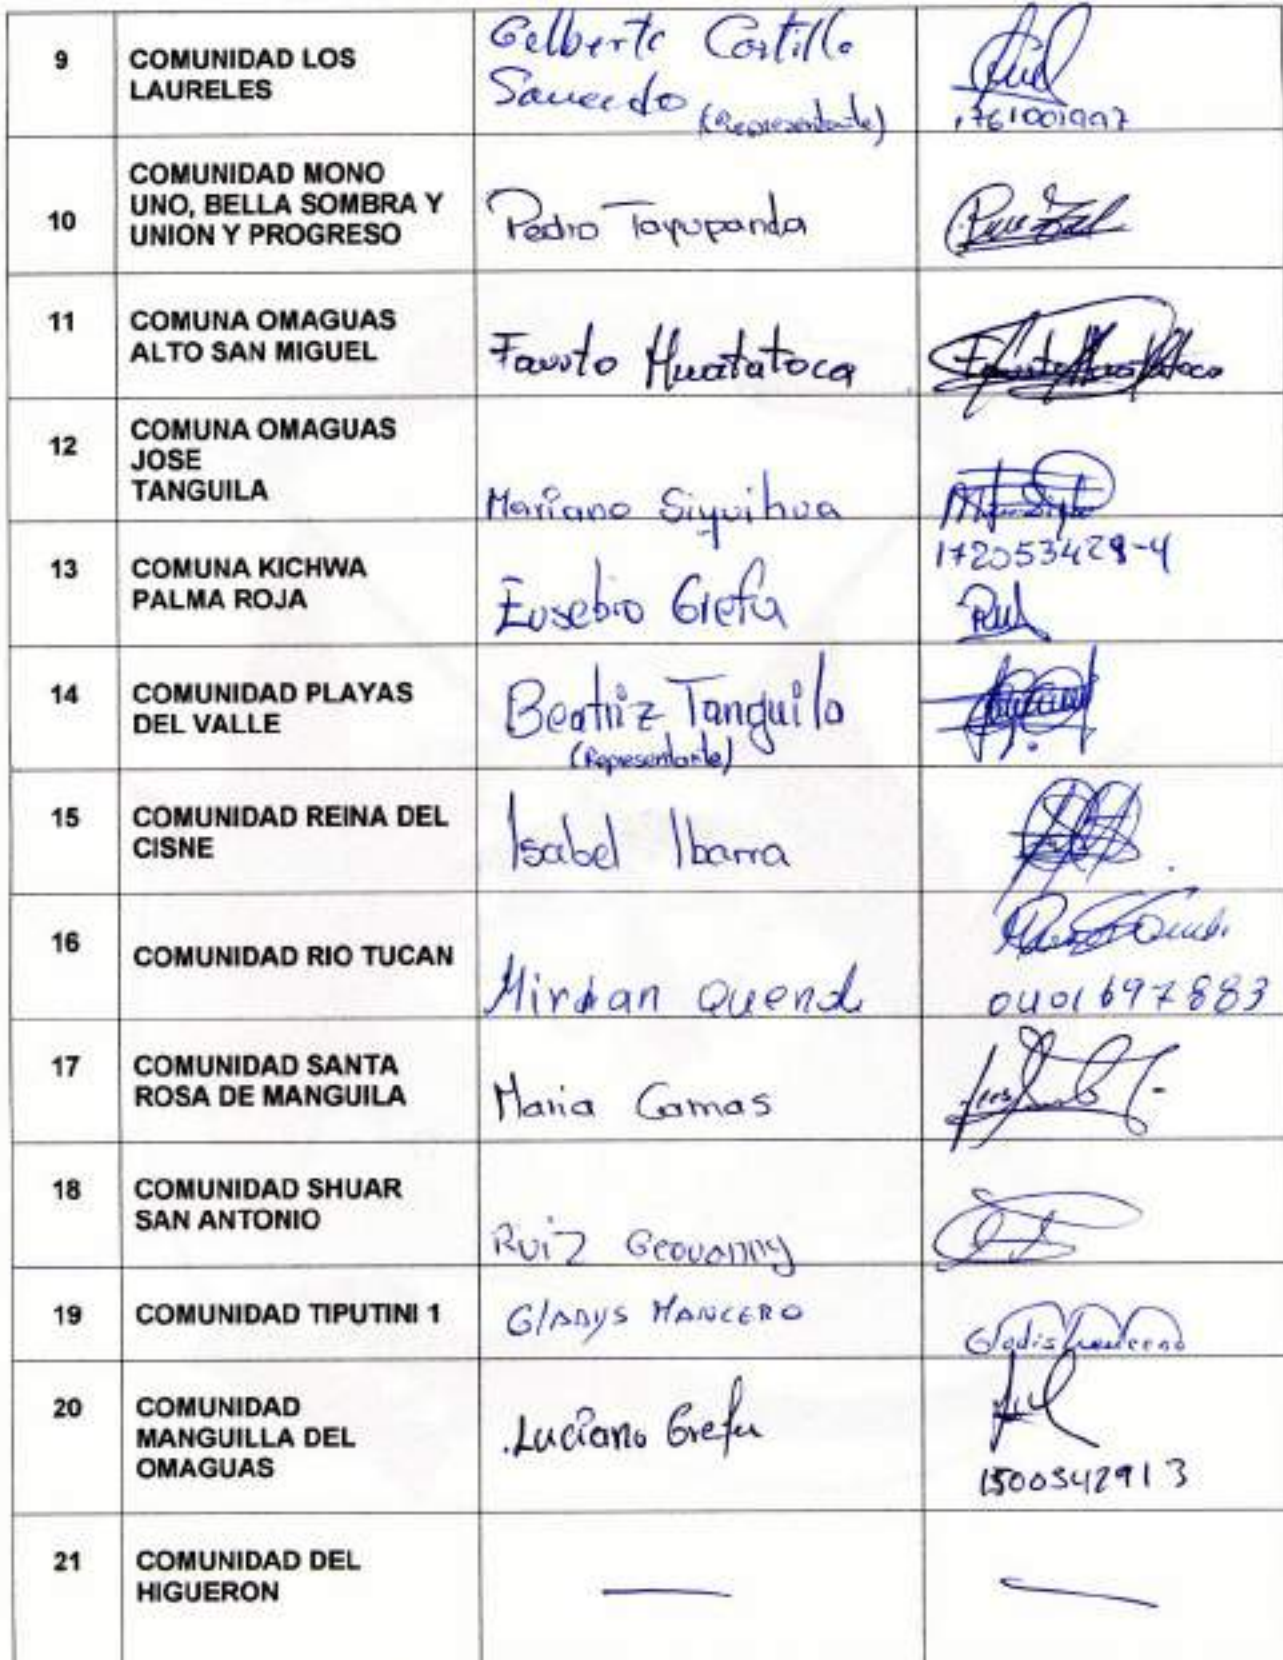 9 COMUNIDAD LOS LAURELES Gelberto Castillo Saucedo (Representante)
10 COMUNIDAD MONO UNO, BELLA SOMBRA Y UNION Y PROGRESO Pedro Tayupanda
11 COMUNA OMAGUAS ALTO SAN MIGUEL Fausto Huatatoca
12 COMUNA OMAGUAS JOSE TANGUILA Mariano Siquihua
172053429-4
13 COMUNA KICHWA PALMA ROJA Eusebio Grefa
14 COMUNIDAD PLAYAS DEL VALLE Beatriz Tanguila (Representante)
15 COMUNIDAD REINA DEL CISNE Isabel Ibarra
16 COMUNIDAD RIO TUCAN 0401697883
17 COMUNIDAD SANTA ROSA DE MANGUILA Maria Camas
18 COMUNIDAD SHUAR SAN ANTONIO Ruiz Geovanny
19 COMUNIDAD TIPUTINI 1 Gladys Mancero
20 COMUNIDAD MANGUILLA DEL OMAGUAS Luciano Grefa 1500542913
21 COMUNIDAD DEL HIGUERON